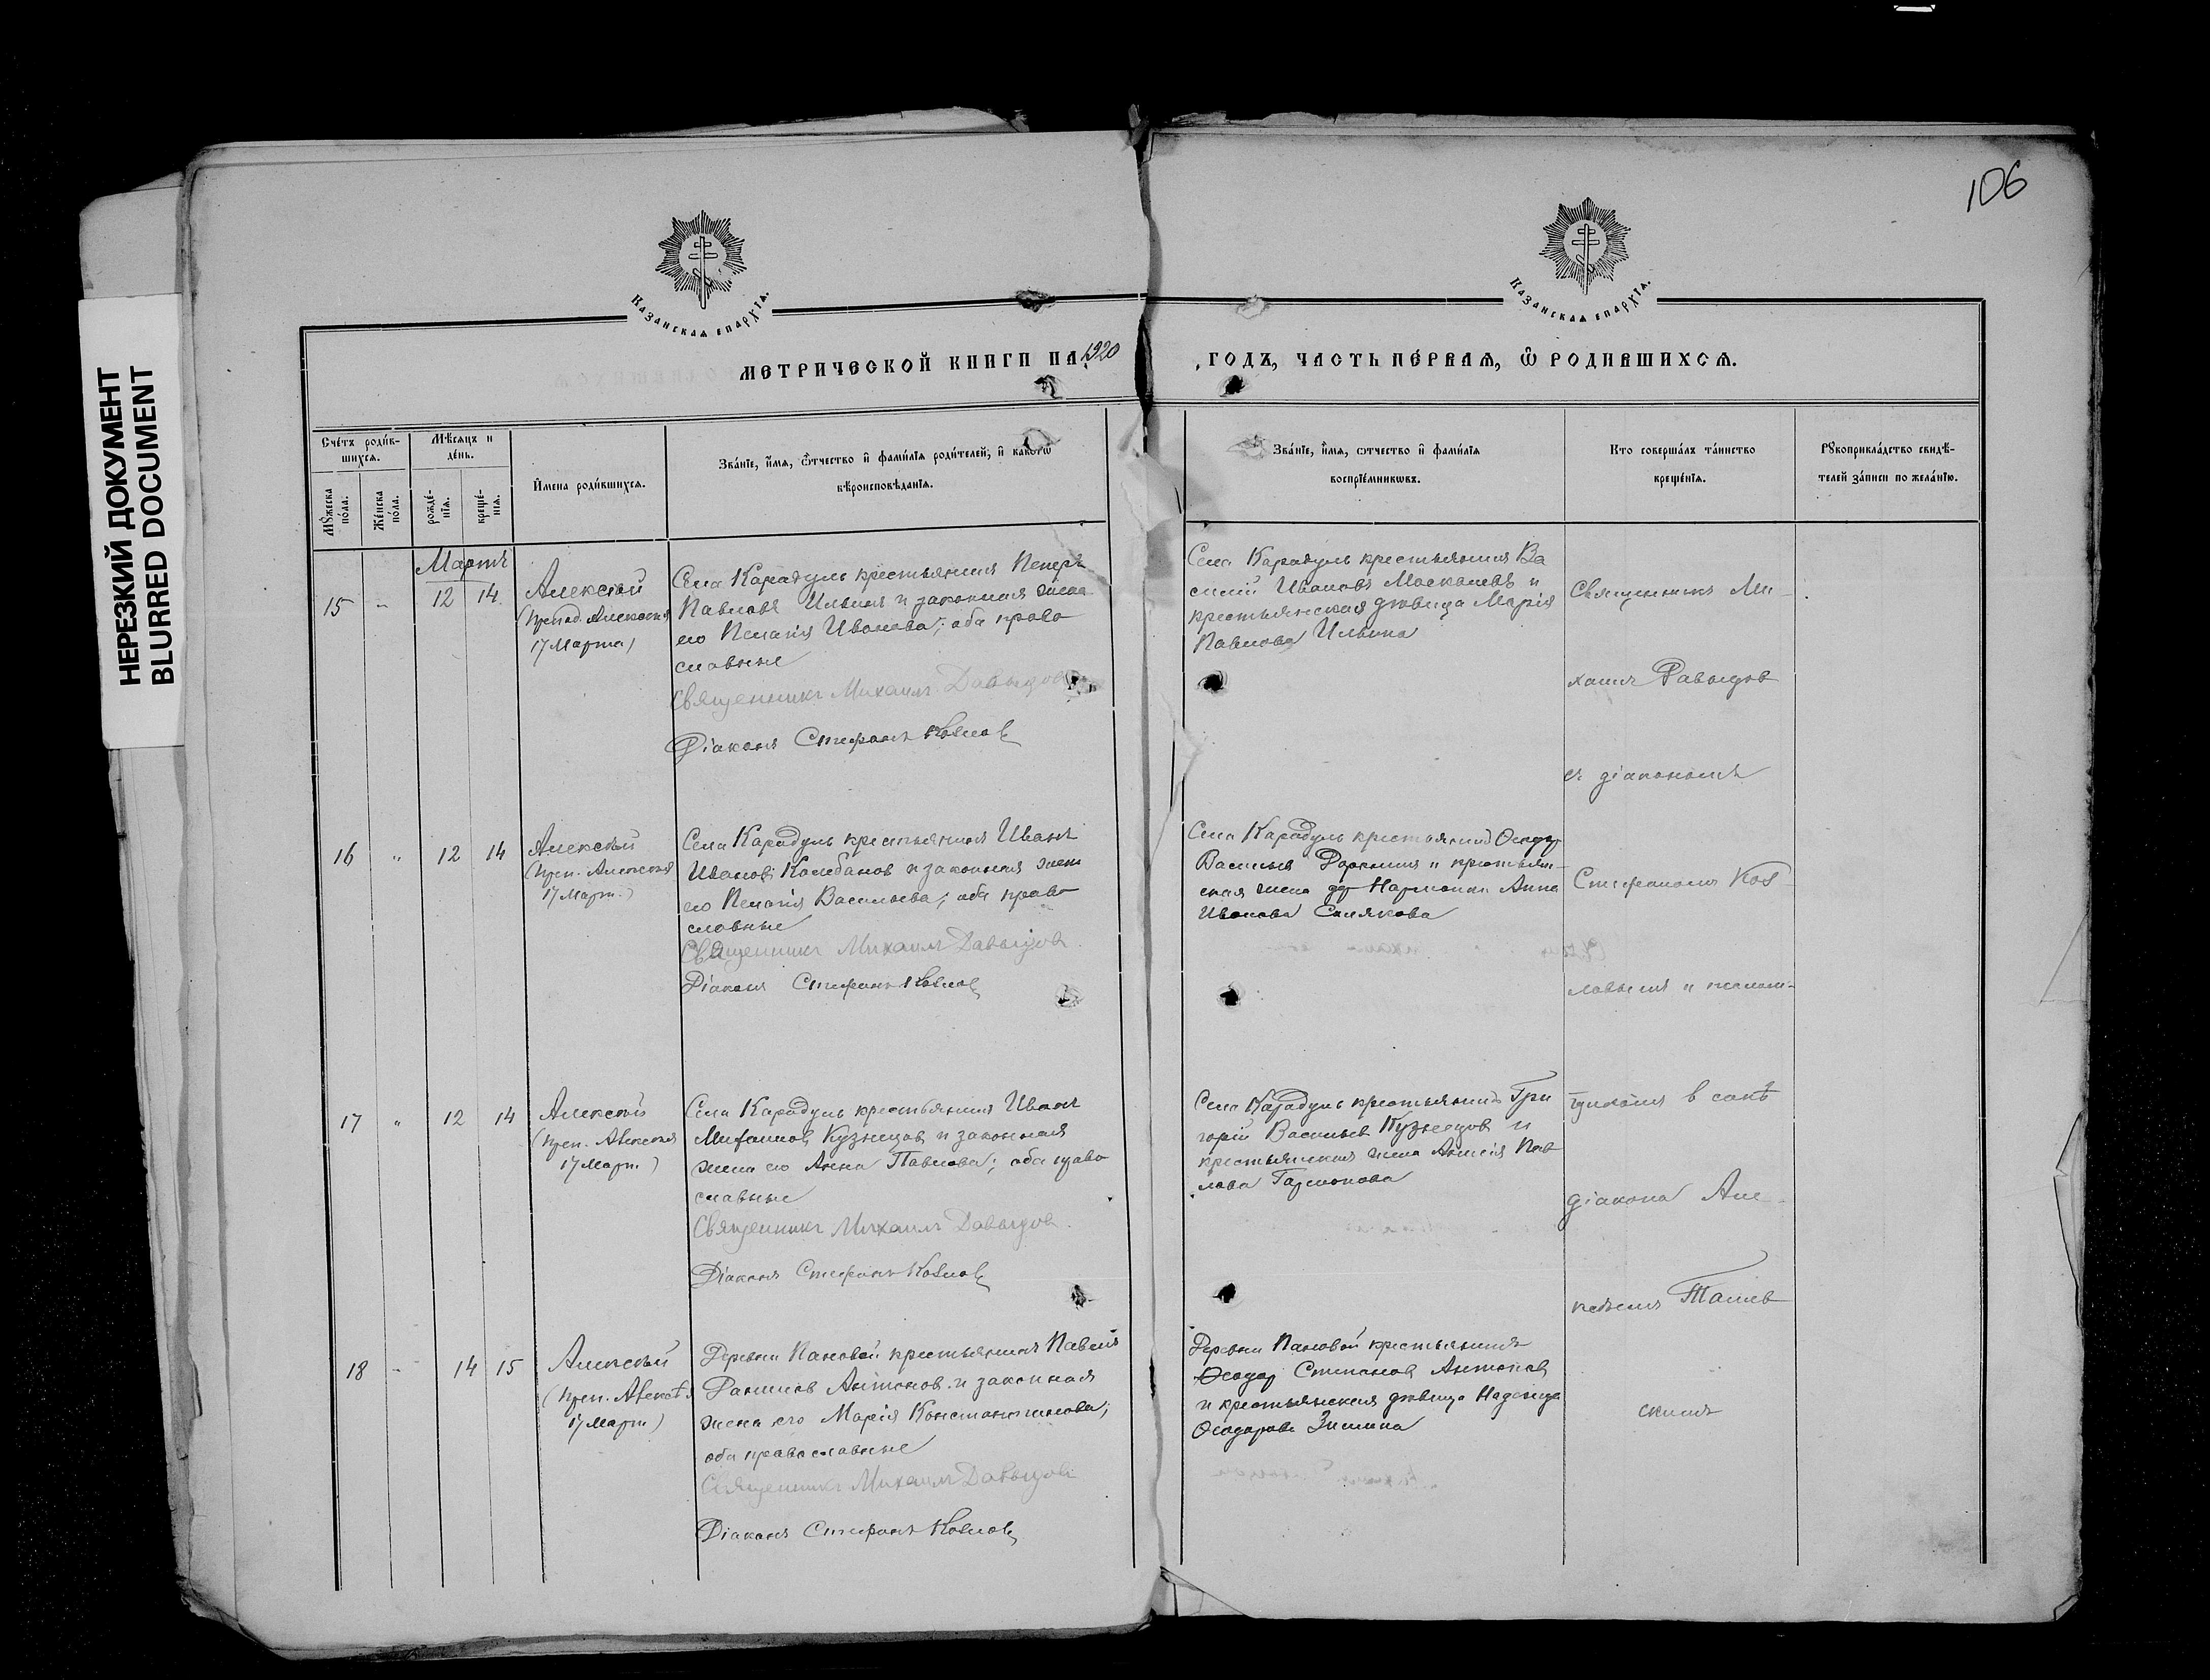 106
НЕРЕЗКИЙ ДОКУМЕНТ
BLURRED DOCUMENT
Казанская епархїа.
Казанская епархїа.
МЕТРИЧЕСКОЙ КНИГИ НА 1920
ГОДЪ, ЧАСТЬ ПЕ́РВАЯ, Ѿ РОДИВШИХСЯ.
Сче́тъ роди́в-
шихся.
Мѣ́сяцъ и
де́нь.
Мꙋ́жеска
по́ла.
Же́нска
по́ла.
рожде́-
нїя.
креще́-
нїя.
И҆мена роди́вшихся.
Зва́нїе, и҆́мя, ѻ҆́тчество и҆ фами́лїя роди́телей, и҆ како́гѡ
вѣроисповѣ́данїя.
Зва́нїе, и҆́мя, ѻтчество и҆ фами́лїя
воспрїе́мникѡвъ.
Кто соверша́лъ та́инство
креще́нїя.
Рꙋкоприкла́дство свидѣ́-
телей за́писи по жела́нїю.
Мартъ
15 - 12 14
Алексѣй
(Препод. Алексѣя
17 Марта)
Села Карадуль крестьянинъ Петръ
Павловъ Ильинъ и законная жена
его Пелагія Иванова; оба право
славные
Священникъ Михаилъ Давыдовъ
Діаконъ Стефанъ Козлов
Села Карадуль крестьянинъ Ва
силий Ивановъ Москалевъ и
крестьянская дѣвица Марія
Павлова Ильина
Священникъ Ми-
хаилъ Давыдов
съ діакономъ
16 " 12 14
Алексѣй
(Преп. Алексѣя
17 Март.)
Села Карадуль крестьянинъ Иванъ
Ивановъ Колебанов и законная жена
его Пелагія Васильева; оба право
славные
Священникъ Михаилъ Давыдов
Діаконъ Стефанъ Козлов
Села Карадуль крестьянинъ Ѳеодор
Васильев и крестьян-
ская жена Анна
Иванова Слиякова
Стефаномъ Коз-
ловымъ и псалом-
17 " 12 14
Алексѣй
(Преп. Алексѣя
17 Март.)
Села Карадуль крестьянинъ Иванъ
Михаилов Кузнецов и законная
жена его Анна Павлова; оба право
славные
Священникъ Михаилъ Давыдов
Діаконъ Стефанъ Козлов
Села Карадуль крестьянинъ Гри
горій Васильев Кузнецов и
крестьянская жена Пав
лова Гармонова
щикомъ в санѣ
діакона Але-
ксѣемъ Талиев
скимъ
18 - 14 15
Алексѣй
(Преп. Алексѣя
17 Март)
Деревни Пановой крестьянинъ Павелъ
Данилов Антонов и законная
жена его Марія Константинова;
оба православные
Священникъ Михаилъ Давыдов
Діаконъ Стефанъ Козлов
Деревни Пановой крестьянинъ
Ѳеодор Степанов Антонов
и крестьянская дѣвица Надежда
Ѳеодорова Зимина